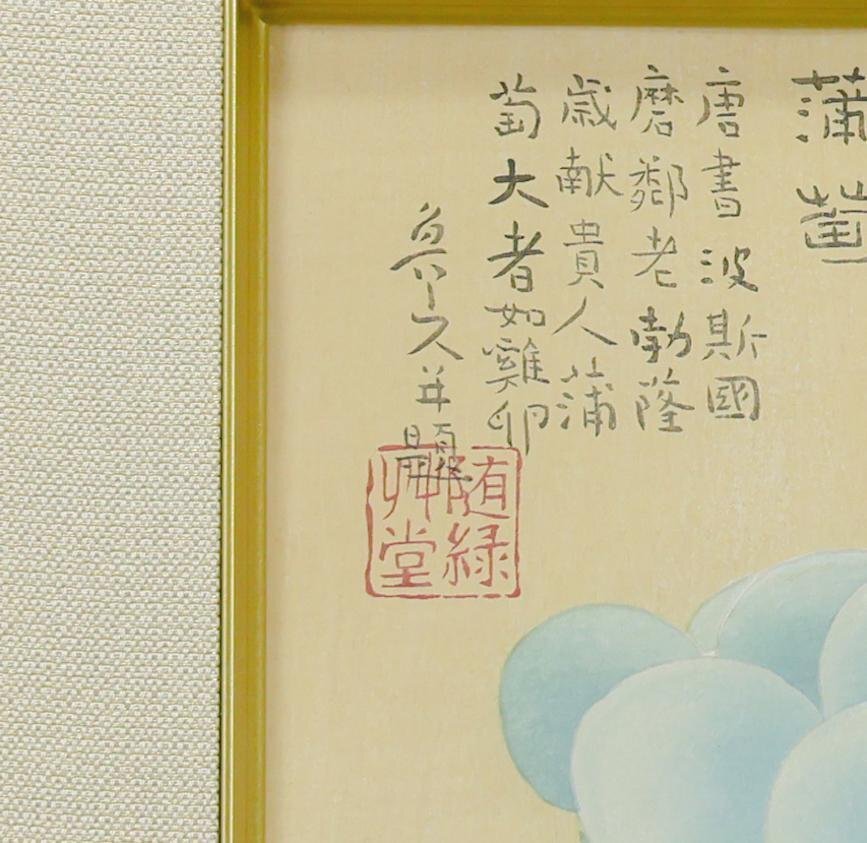 蒲萄
唐書波斯國
磨鄰老勃薩
歳献貴人蒲
萄大者如雞卵
魚久并題
随緑艸堂